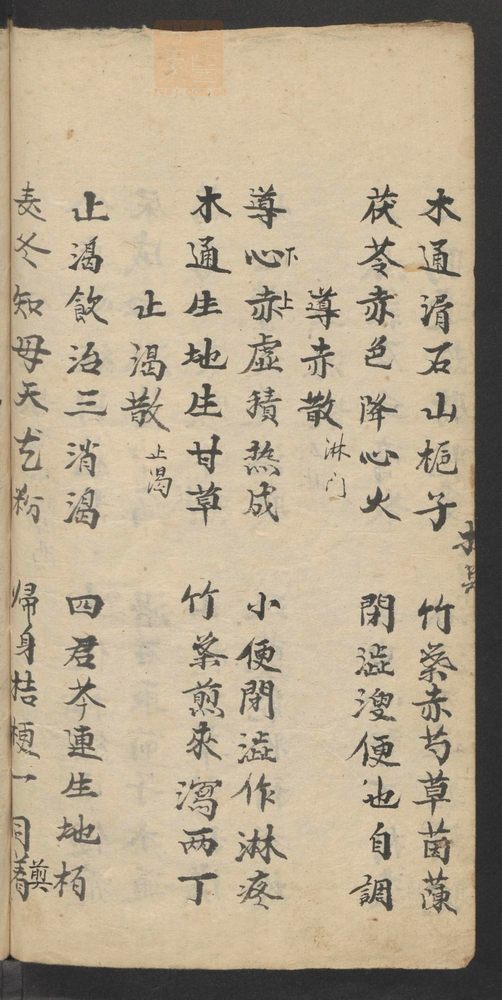 木通滑石山梔子 竹葉赤芍草茵蔯
茯苓赤色降心火 閉澁溲便也自調
導赤散 淋门
導心下赤上虛積热成 小便閉澁作淋疼
木通生地生甘草 竹葉煎来瀉两丁
止渴散 止渴
止渴飲治三消渴 四君芩連生地栢
麦冬知母天花粉 帰身桔梗一同煎